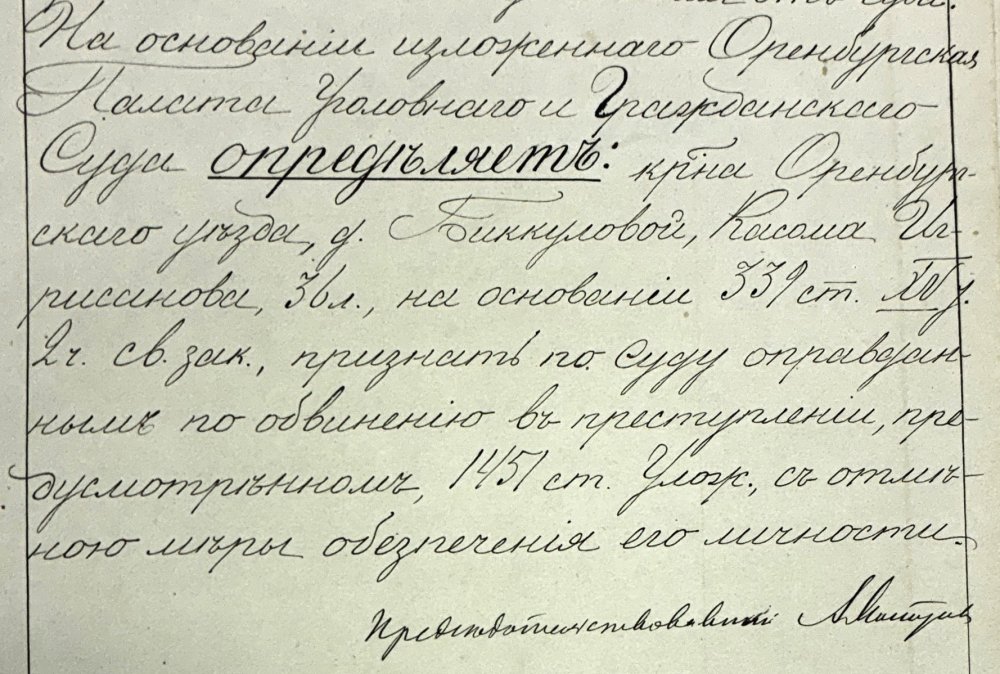 На основаніи изложеннаго Оренбургская
Палата Уголовнаго и Гражданскаго
Суда опредѣляетъ: кр-на Оренбург-
скаго уѣзда, д. Биккуловой, Касома Иг-
рисанова, 36 л., на основаніи 339 ст. XVI т.
2 ч. св. зак., признать по суду оправдан-
нымъ по обвиненію въ преступленіи, пре-
дусмотрѣнномъ, 1451 ст. Улож., съ отмѣ-
ною мѣры обезпеченія его личности.
Предсѣдательствовавшій